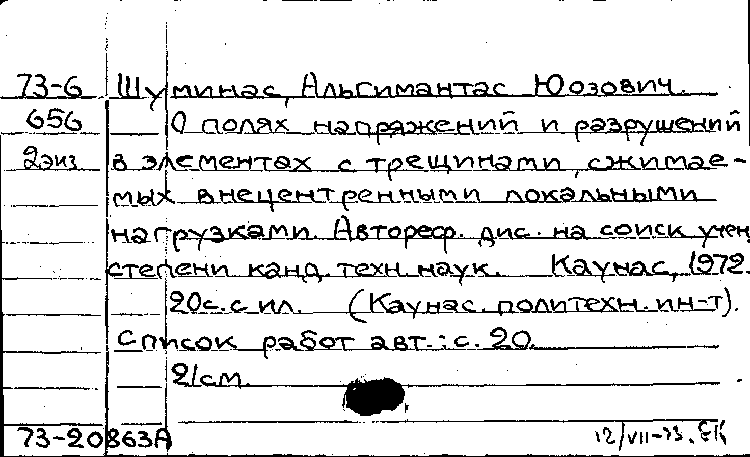 73-6 Шуминас, Альгимантас Юозович.
656 О полях напряжений и разрушений
2 экз в элементах с трещинами, сжимае-
мых внецентренными локальными
нагрузками. Автореф. дис. на соиск учен
степени канд. техн. наук. Каунас, 1972.
20с. с ил. (Каунас. политехн. ин-т).
Список работ авт.: с. 20.
21см.
73-20863А 12/VII-73.